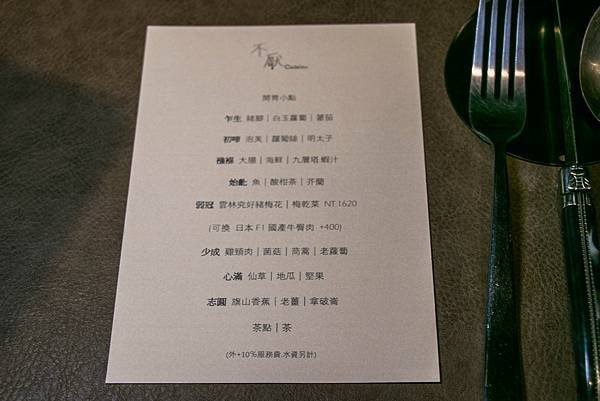 不厭 Cuisine
開胃小點
乍生 豬腳｜白玉蘿蔔｜蕃茄
初啼 泡芙｜蘿蔔絲｜明太子
襁褓 大腸｜海鮮｜九層塔.蝦汁
始齔 魚｜酸柑茶｜芥蘭
弱冠 雲林究好豬梅花｜梅乾菜 NT.1620
(可換 日本 F1 國產牛臀肉 +400)
少成 雞頸肉｜菌菇｜茼蒿｜老蘿蔔
心滿 仙草｜地瓜｜堅果
志圓 旗山香蕉｜老薑｜拿破崙
茶點｜茶
(外+10%服務費.水資另計)